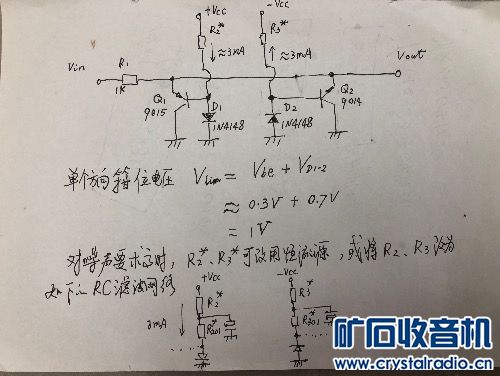 +Vcc
-Vcc
R2*
≈3mA
R3*
≈3mA
Vin
R1
1K
Vout
Q1
9015
D1
1N4148
D2
1N4148
Q2
9014
单个方向箝位电压 Vlim = Vbe + VD1-2
≈ 0.3V + 0.7V
= 1V
对噪声要求高时, R2*、R3*可改用恒流源, 或将R2、R3改为
如下RC滤波网络
+Vcc
-Vcc
R2*
R3*
3mA
R201
R301
矿石收音机
www.crystalradio.cn